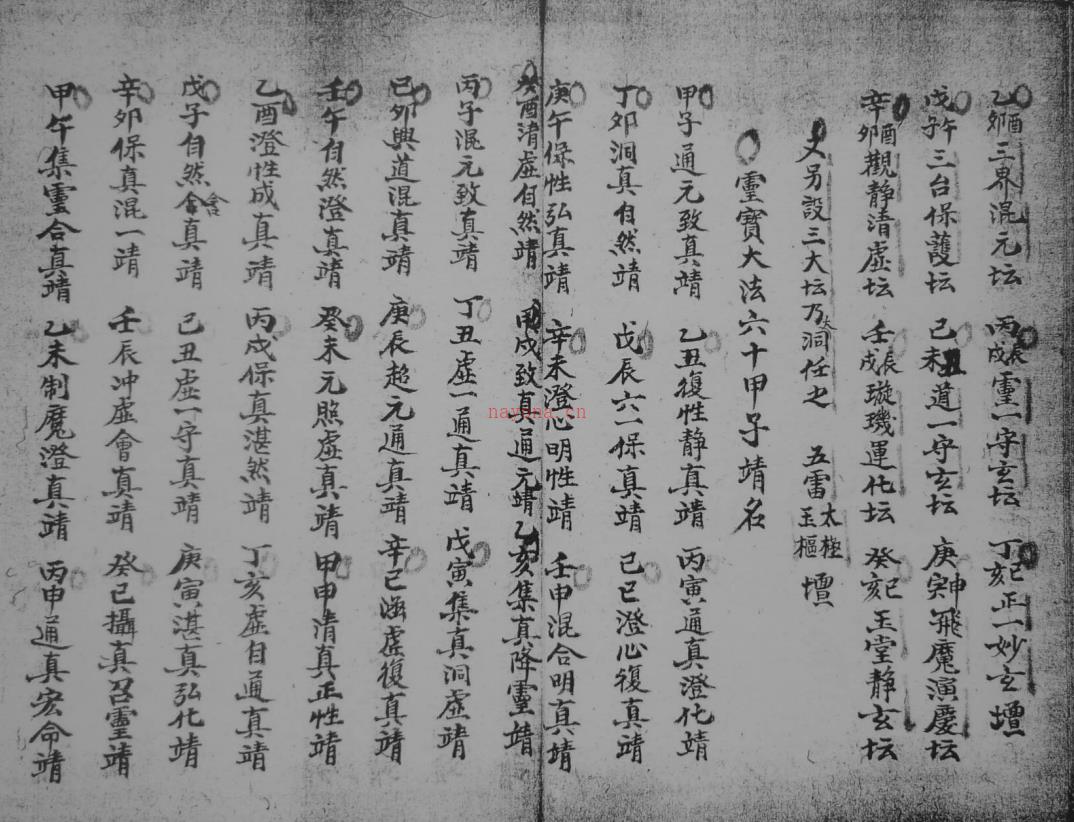 乙卯酉三界混元坛 丙戍辰靈一守玄坛 丁亥巳正一妙玄壇
戊子午三台保護坛 己未丑道一守玄坛 庚寅申飛魔演慶坛
辛卯酉觀静清虛坛 壬戍辰璇璣運化坛 癸亥巳玉堂静玄坛
又另設三大坛乃大洞任之 五雷玉樞太極壇
靈寶大法六十甲子靖名
甲子通元致真靖 乙丑復性静真靖 丙寅通真澄化靖
丁卯洞真自然靖 戊辰六一保真靖 己巳澄心復真靖
庚午保性弘真靖 辛未澄心明性靖 壬申混合明真靖
癸酉清虛自然靖 甲戍致真通元靖 乙亥集真降靈靖
丙子混元致真靖 丁丑虛一通真靖 戊寅集真洞虛靖
己卯與道混真靖 庚辰超元通真靖 辛巳涵虛復真靖
壬午自然澄真靖 癸未元照虛真靖 甲申清真正性靖
乙酉澄性成真靖 丙戍保真湛然靖 丁亥虛白通真靖
戊子自然含真靖 己丑虛一守真靖 庚寅湛真弘化靖
辛卯保真混一靖 壬辰冲虛會真靖 癸巳攝真召靈靖
甲午集靈合真靖 乙未制魔澄真靖 丙申通真宏命靖
nayona.cn